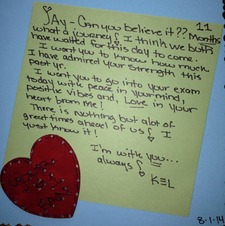 JAy - Can you believe it?? 11 Months
what a journey! I think we both
have waited for this day to come.
I want you to know how much
I have admired your strength this
past yr.
I want you to go into your exam
today with peace in your mind,
positive vibes and, Love in your
heart from me!
There is nothing but alot of
great times ahead of us! I
just know it!
I'm with you...
always!
KEL
8-1-14